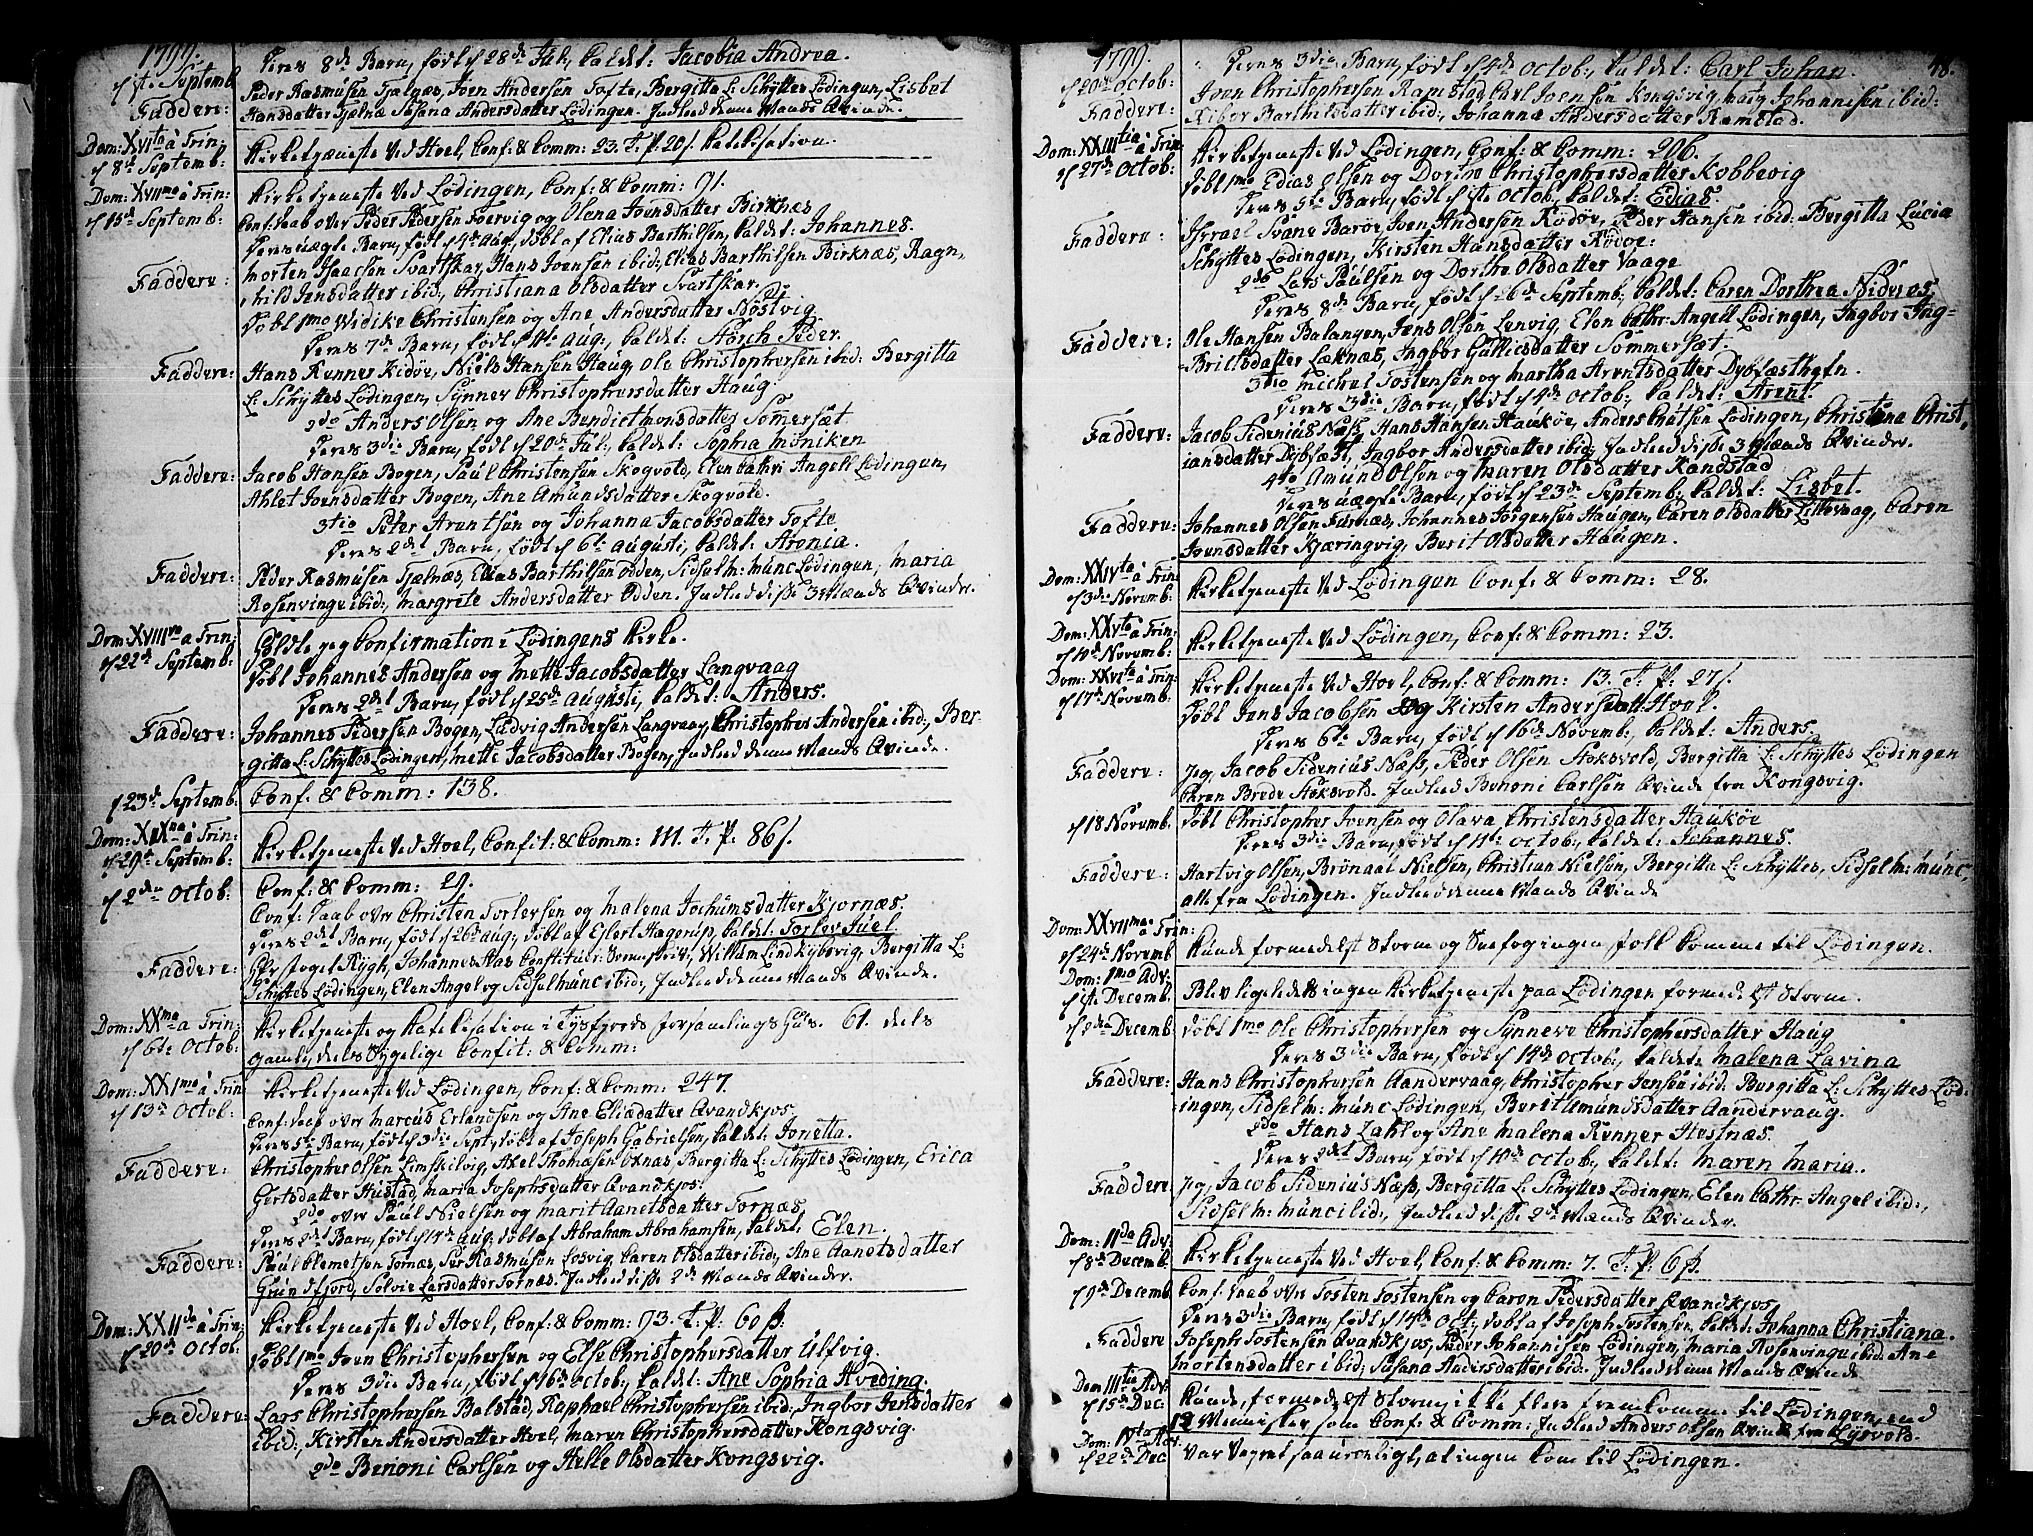 1799.
d 1ste Septemb
Deres 8de Barn, født d 28de Jul, kaldet: Jacobia Andrea.
Faddere: Peder Rasmusen Tjelnæs, Joen Andersen Tofte, Bergitte L: Schyttes Lødingen, Lisbet
Hansdatter Tjelnæ Susana Andersdatter Lødingen. Indled denne Mands Qvinde.
Dom: XVIta à Trin:
d 8de Septemb:
Kirketjeneste ved Hoel, Conf: & Comm: 23. T. P. 20/. Catechisation.
Dom: XVIIma à Trin:
d 15de Septemb:
Kirketjeneste ved Lødingen, Conf: & Comm: 91.
Conf: Daab over Peder Pedersen Foervig og Olena Joensdatter Birknæs
Deres uægte Barn, født d 4de Aug, døbt af Elias Barthilsen, kaldet: Johannes.
Faddere: Morten Isacsen Svartskar, Hans Joensen ibid:, Elias Barthilsen Birknæs, Ragn,
hild Jensdatter ibid:, Christiana Olsdatter Svartskar.
Døbt 1mo Widike Christensen og Ane Andersdatter Nøstvig
Deres 7de Barn, født d 11te Aug:, kaldet: Storch Peder.
Faddere: Hans Renner Kidøe, Niels Hansen Haug, Ole Christophersen ibid: Bergitta
L: Schyttes Lødingen, Synnev Christophersdatter Haug
2do Anders Olsen og Ane Bendicthmonsdatter Somersæt
Deres 3die Barn, født d 20de Jul: kaldet: Sophia Møniken
Faddere: Jacob Hansen Bogen, Paul Christensen Skogvold, Elen Cathri Angell Lødingen,
Ahlet Joensdatter Bogen, Ane Amundsdatter Skogvold.
3tio Peter Arentsen og Johanna Jacobsdatter Tofte
Deres 2det Barn, født d 6te Augusti, kaldet: Aronia.
Faddere: Peder Rasmusen Tjelnæs, Elias Barthilsen Odden, Sidsel M: Munc Lødingen, Maria
Rosenvinge ibid:, Margrete Andersdatter Odden. Indled disse 3 Mænds Qvinder.
Dom: XVIIIva à Trin:
d 22de Septemb:
Holdte jeg Confirmation i Lødingens Kirke.
Døbt Johannes Andersen og Mette Jacobsdatter Langvaag
Deres 2det Barn, født d 25de Augusti, kaldet: Anders.
Faddere: Johannes Pedersen Bogen, Ludvig Andersen Langvaag, Christopher Andersen ibid:, Ber-
gitta L: Schyttes Lødingen, Mette Jacobsdatter Bogen, Indled denne Mands Qvinde.
d 23de Septemb:
Conf: & Comm: 138.
Dom: XIXna à Trin:
d 29de Septemb:
Kirketjeneste ved Hoel, Confit: & Comm: 111. T. P. 86/.
d 2den Octob:
Conf: & Comm: 29.
Conf: Daab over Christen Torlevsen og Malena Jochumsdatter Kjornæs
Deres 2det Barn, født d 26de Aug:, døbt af Ejlert Hagerup, kaldet: Torlev Juel
Faddere: Hr Foget Rÿgh, Johannes Aas Constituer: Sorenskriv:, Willum Lind Kjøbvig, Bergitta L:
Schyttes Lødingen, Elen Angel og Sidsel Munc ibid:, Indled denne Mands Qvinde.
Dom: XXma à Trin:
d 6te Octob:
Kirketjeneste og Catechisation i Tysfjords Forsamlings Huus. 61. deels
gamle, deels sygelige Confit: & Comm:
Dom: XXIma à Trin
d 13de Octob:
Kirketjeneste ved Lødingen, Conf: & Comm: 247.
Conf: Daab over Marcus Erlandsen og Ane Eliædatter Qvandkjos
Deres 5te Barn, født d 3die Sept:, døbt af Joseph Gabrielsen, kaldet: Jonetta.
Faddere: Christopher Olsen Limskilvig, Axel Thomæsen Oxnæs, Bergitta L: Schyttes Lødingen, Erica
Gertsdatter Hustad, Maria Josephsdatter Qvandkjos.
2do over Paul Nielsen og Marit Aanetsdatter Tornæs
Deres 2det Barn, født d 14de Aug: døbt af Abraham Abrahamsen, kaldet Elen.
Faddere: Paul Clemetsen Tornæs, Per Rasmusen Losvig, Caren Olsdatter ibid:, Ane Aanetsdatter
Grundfjord, Solvie Larsdatter Tornæs. Indled disse 2de Mænds Qvinder.
Dom: XXIIda à Trin:
d 20de Octob:
Kirketjeneste ved Hoel, Conf: & Comm: 73. T: P: 60 ß.
Døbt 1mo Joen Christophersen og Else Christophersdatter Ulfvig.
Deres 3die Barn, født d 16de Octob:, kaldet: Ane Sophia Hveding.
Faddere: Lars Christophersen Balstad, Raphael Christophersen ibid:, Ingbor Jensdatter
ibid:, Kirsten Andersdatter Hoel, Maren Christophersdatter Kongsvig.
2do Benoni Carlsen og Helle Olsdatter Kongsvig.
1799.
48.
d 20de Octob:
Deres 3die Barn, født d 4de Octob:, kaldet: Carl Johan.
Faddere: Joen Christophersen Ramstad, Carl Joensen Kongsvig, Mats Johannisen ibid:
Kibor Barthildsdatter ibid:, Johanna Andersdatter Ramstad.
Dom: XXIIItia à Trin
d 27de Octob:
Kirketjeneste ved Lødingen, Conf: & Comm: 206.
Døbt 1mo Edias Olsen og Dorthe Christophersdatter Kobbevig
Deres 5te Barn, født d 1ste Octob, kaldet: Edias.
Faddere: Israel Svane Barøe, Joen Andersen Rødøe, Peder Hansen ibid. Bergitta Lucia
Schyttes Lødingen, Kirsten Hansdatter Rødøe:
2do Lars Paulsen og Dorthe Olsdatter Vaage
Deres 8de Barn, født d 26de Septemb:, kaldet: Caren Dorthea Nideros,
Faddere: Ole Hansen Balangen, Jens Olsen Lenvig, Elen Cathr: Angell Lødingen, Ingbor Ing-
Britsdatter Læknæs, Ingbor Gullicsdatter Sommersæt.
3tio Michel Tostensen og Martha Arentsdatter Dybfæsthøfn.
Deres 3die Barn, født d 4de Octob:, kaldet: Arent.
Faddere: Jacob Sidenius Næss, Hans Hansen Haukøe, Anders Knutsen Lødingen, Christiana Christ,
jansdatter Dybfæst, Ingbor Andersdatter ibid:, Indled disse 3 Mænds Qvinder.
4to Amund Olsen og Maren Olsdatter Kandstad
Deres uægte Barn, født d 23de Septemb:, kaldet: Lisbet.
Faddere: Johannes Olsen Furnæs, Johannes Jørgensen Haugen, Caren Olsdatter Lillevaag, Caren
Joensdatter Kjæringvig, Berit Olsdatter Haugen.
Dom: XXIVta à Trin:
d 3die Novemb:
Kirketjeneste ved Lødingen Conf: & Comm: 28.
Dom: XXVta à Trin:
d 10de Novemb:
Kirketjeneste ved Lødingen, Conf: & Comm: 23.
Dom: XXVIta à Trin:
d 17de Novemb:
Kirketjeneste ved Hoel, Conf: & Comm: 13. T. P. 27/.
Døbt Jens Jacobsen og Kirsten Andersdatt: Hoel.
Deres 6te Barn, født d 16de Novemb:, kaldet: Anders,
Faddere: Jeg, Jacob Sidenius Næss, Peder Olsen Stoksvold, Bergitta L: Schyttes Lødingen
Chren Brede Stoksvold. Indled Benoni Carlsen Qvinde fra Kongsvig.
d 18 Novemb.
Døbt Christopher Joensen og Olava Christensdatter Haukøe
Deres 3die Barn, født d 11te Octob:, kaldet: Johannes.
Faddere: Hartvig Olsen, Brønaal Nielsen, Christian Nielsen, Bergitta L: Schyttes, Sidsel M: Munc,
alle fra Lødingen. Indled denne Mands Qvinde
Dom: XXVIIma à Trin:
d 24de Novemb
Kunde formedelst Storm og Snefog ingen Folk komme til Lødingen.
Dom: 1ma Adv:
d 1ste Decemb.
Blev ligeledes ingen Kirketjeneste paa Lødingen formedelst Storm.
d 2den Decemb:
Døbt 1mo Ole Christophersen og Synneve Christophersdatter Haug
Deres 3die Barn, født d 14de Octob:, kaldet Malena Lavina
Faddere: Hans Christophersen Aandervaag, Christopher Jensen ibid: Bergitta L: Schyttes Lød:
ingen, Sidsel M: Munc Lødingen, Berit Amundsdatter Aandervaag.
2do Hans Lahl og Ane Malena Renner Hestnæs.
Deres 2det Barn, født d 10de Octob:, kaldet: Maren Maria.
Faddere Jeg, Jacob Sidenius Næss, Bergitta L: Schyttes Lødingen, Elen Cathr: Angel ibid:,
Sidsel M: Munc ibid:, Indled disse 2de Mænds Qvinder.
Dom: IIda Adv:
d 8de Decemb:
Kirketjeneste ved Hoel, Conf: & Comm: 7. T: P: 6 ß.
d 9de Decemb
Conf: Daab over Tosten Tostensen og Caren Pedersdatter Qvandkjos
Deres 3die Barn, født d 14de Oct:, døbt af Joseph Tostensen, kaldet: Johanna Christiana.
Faddere Joseph Tostensen Qvandkjos, Peder Johannisen Lødingen, Maria Rosenvinge ibid: Ane
Mortensdatter ibid:, Susana Andersdatter ibid: Indled denne Mands Qvinde
Dom IIItia Adv:
d 15de Dec:
Kunde, formedelst Storm, ikke flere fremkomme til Lødingen, end
12 Mennisker, som Conf: & Comm: Indled Anders Olsen Qvinde fra Lysvold.
Dom: IVta Adv:
d 22de Dec
Var Vejret saa uroeligt, at ingen kom til Lødingen.